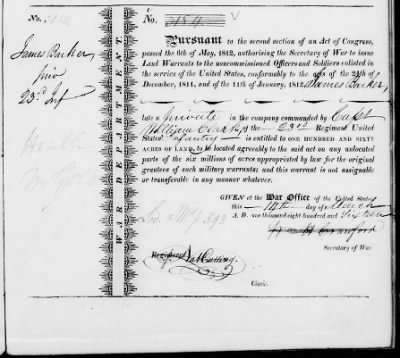 No.
James Barker
priv
23rd Inf
WAR DEPARTMENT
No. 154
Pursuant to the second section of an Act of Congress,
passed the 6th of May, 1812, authorising the Secretary of War to issue
Land Warrants to the noncommissioned Officers and Soldiers enlisted in
the service of the United States, conformably to the acts of the 24th of
December, 1811, and of the 11th of January, 1812, James Barker,
late a private in the company commanded by Capt
William Clark of the 23rd Regiment United
States' Infantry is entitled to ONE HUNDRED AND SIXTY
ACRES OF LAND, to be located agreeably to the said act on any unlocated
parts of the six millions of acres appropriated by law for the original
grantees of such military warrants; and this warrant is not assignable
or transferable in any manner whatever.
GIVEN at the War Office of the United States
this 14th day of March
A. D. one thousand eight hundred and Sixteen
Wm H Crawford
Secretary of War.
Registered
Clerk.